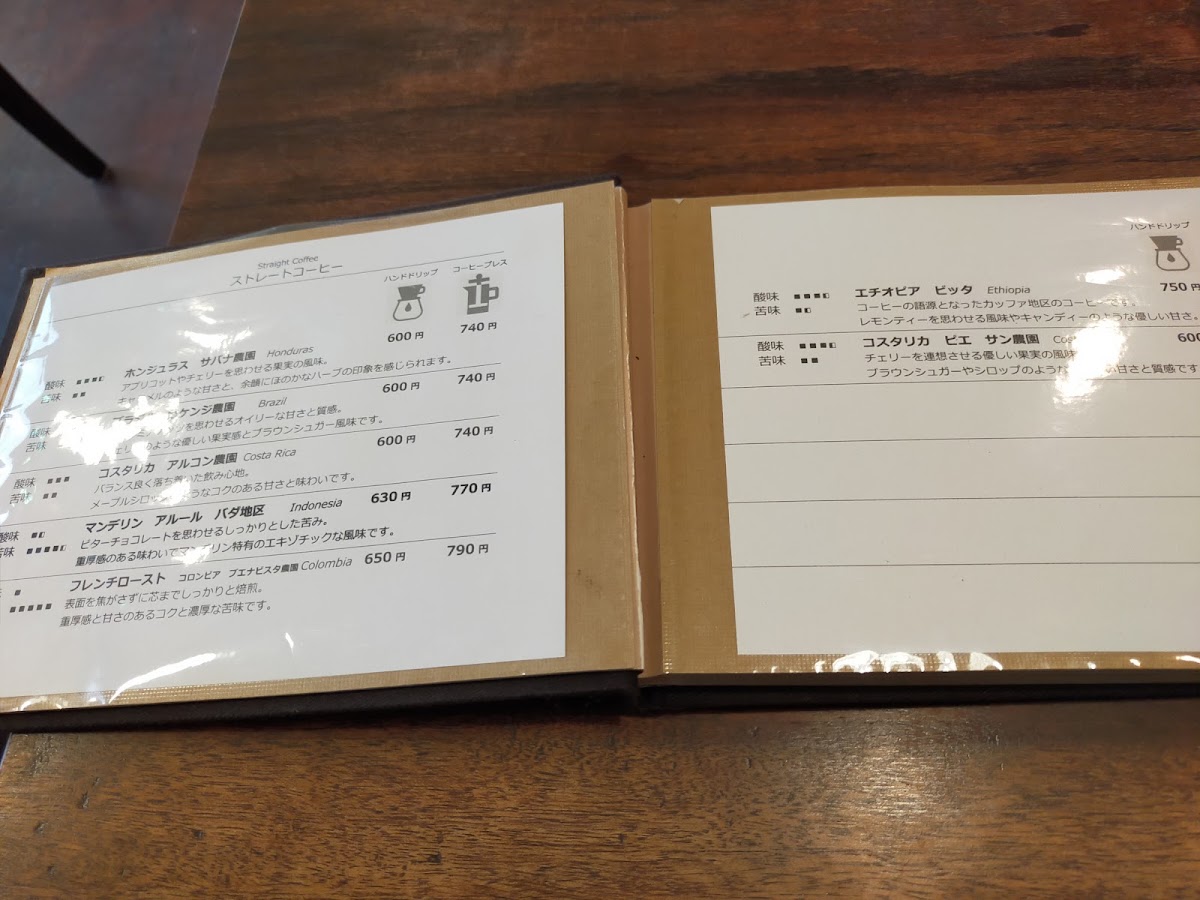 Straight Coffee
ストレートコーヒー
ハンドドリップ コーヒープレス
600円 740円
ホンジュラス サバナ農園 Honduras
酸味 ■■■◧ アプリコットやチェリーを思わせる果実の風味。
苦味 ■■ キャラメルのような甘さと、余韻にほのかなハーブの印象を感じられます。
600円 740円
ケンジ農園 Brazil
酸味 を思わせるオイリーな甘さと質感。
苦味 のような優しい果実感とブラウンシュガー風味です。
600円 740円
コスタリカ アルコン農園 Costa Rica
酸味 ■■■ バランス良く落ち着いた飲み心地。
苦味 ■■ メープルシロップのようなコクのある甘さと味わいです。
630円 770円
マンデリン アルール バダ地区 Indonesia
酸味 ■◧ ビターチョコレートを思わせるしっかりとした苦み。
苦味 ■■■■◧ 重厚感のある味わいでマンデリン特有のエキゾチックな風味です。
フレンチロースト コロンビア ブエナビスタ農園 Colombia 650円 790円
■ 表面を焦がさずに芯までしっかりと焙煎。
■■■■■ 重厚感と甘さのあるコクと濃厚な苦味です。
ハンドドリップ
750円
エチオピア ビッタ Ethiopia
酸味 ■■■◧ コーヒーの語源となったカッファ地区のコーヒーです。
苦味 ■◧ レモンティーを思わせる風味やキャンディーのような優しい甘さ。
コスタリカ ピエ サン農園 600
酸味 ■■■◧ チェリーを連想させる優しい果実の風味
苦味 ■■ ブラウンシュガーやシロップのような 甘さと質感です